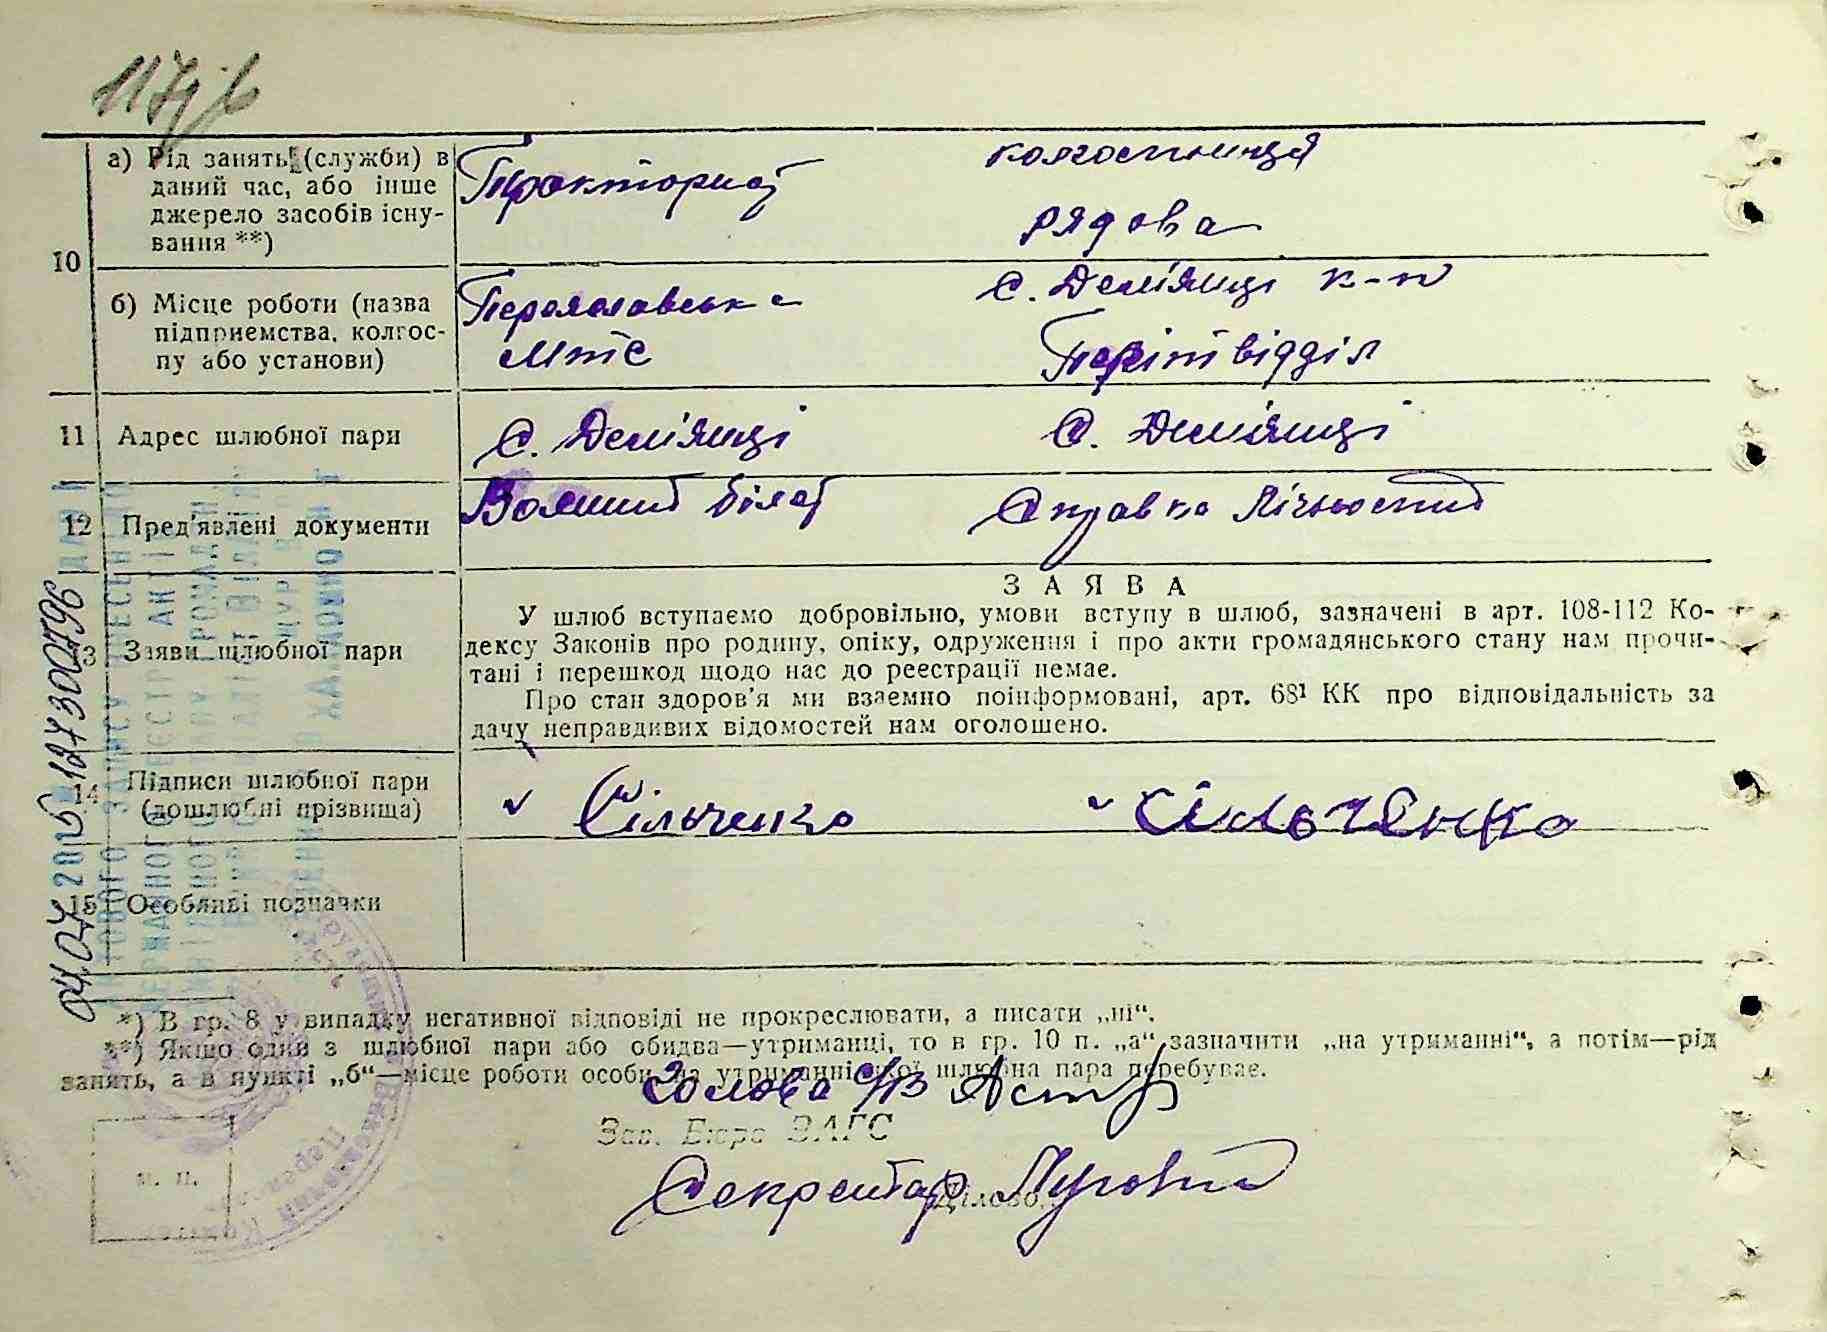 117зв
а) Рід занять (служби) в
даний час, або інше
джерело засобів існу-
вання **)
Тракторист
колгоспниця
рядова
10
б) Місце роботи (назва
підприємства, колгос-
пу або установи)
Переяславська
МТС
с. Дем'янці к-п
11 Адрес шлюбної пари
с. Дем'янці
с. Дем'янці
12 Пред'явлені документи
Воєнний білет
Справка Лічности
13 Заяви шлюбної пари
ЗАЯВА
У шлюб вступаємо добровільно, умови вступу в шлюб, зазначені в арт. 108-112 Ко-
дексу Законів про родину, опіку, одруження і про акти громадянського стану нам прочи-
тані і перешкод щодо нас до реєстрації немає.
Про стан здоров'я ми взаємно поінформовані, арт. 68¹ КК про відповідальність за
дачу неправдивих відомостей нам оголошено.
14 Підписи шлюбної пари
(дошлюбні прізвища)
Сільченко
Сільченко
15 Особливі позначки
*) В гр. 8 у випадку негативної відповіді не прокреслювати, а писати „ні“.
**) Якщо один з шлюбної пари або обидва—утриманці, то в гр. 10 п. „а“ зазначити „на утриманні“, а потім—рід
занять, а в пункті „б“—місце роботи особи, на утриманні якої шлюбна пара перебуває.
Голова с/в
Зав. Бюро ЗАГС
Секретар
Діловод
м. п.
00127300796